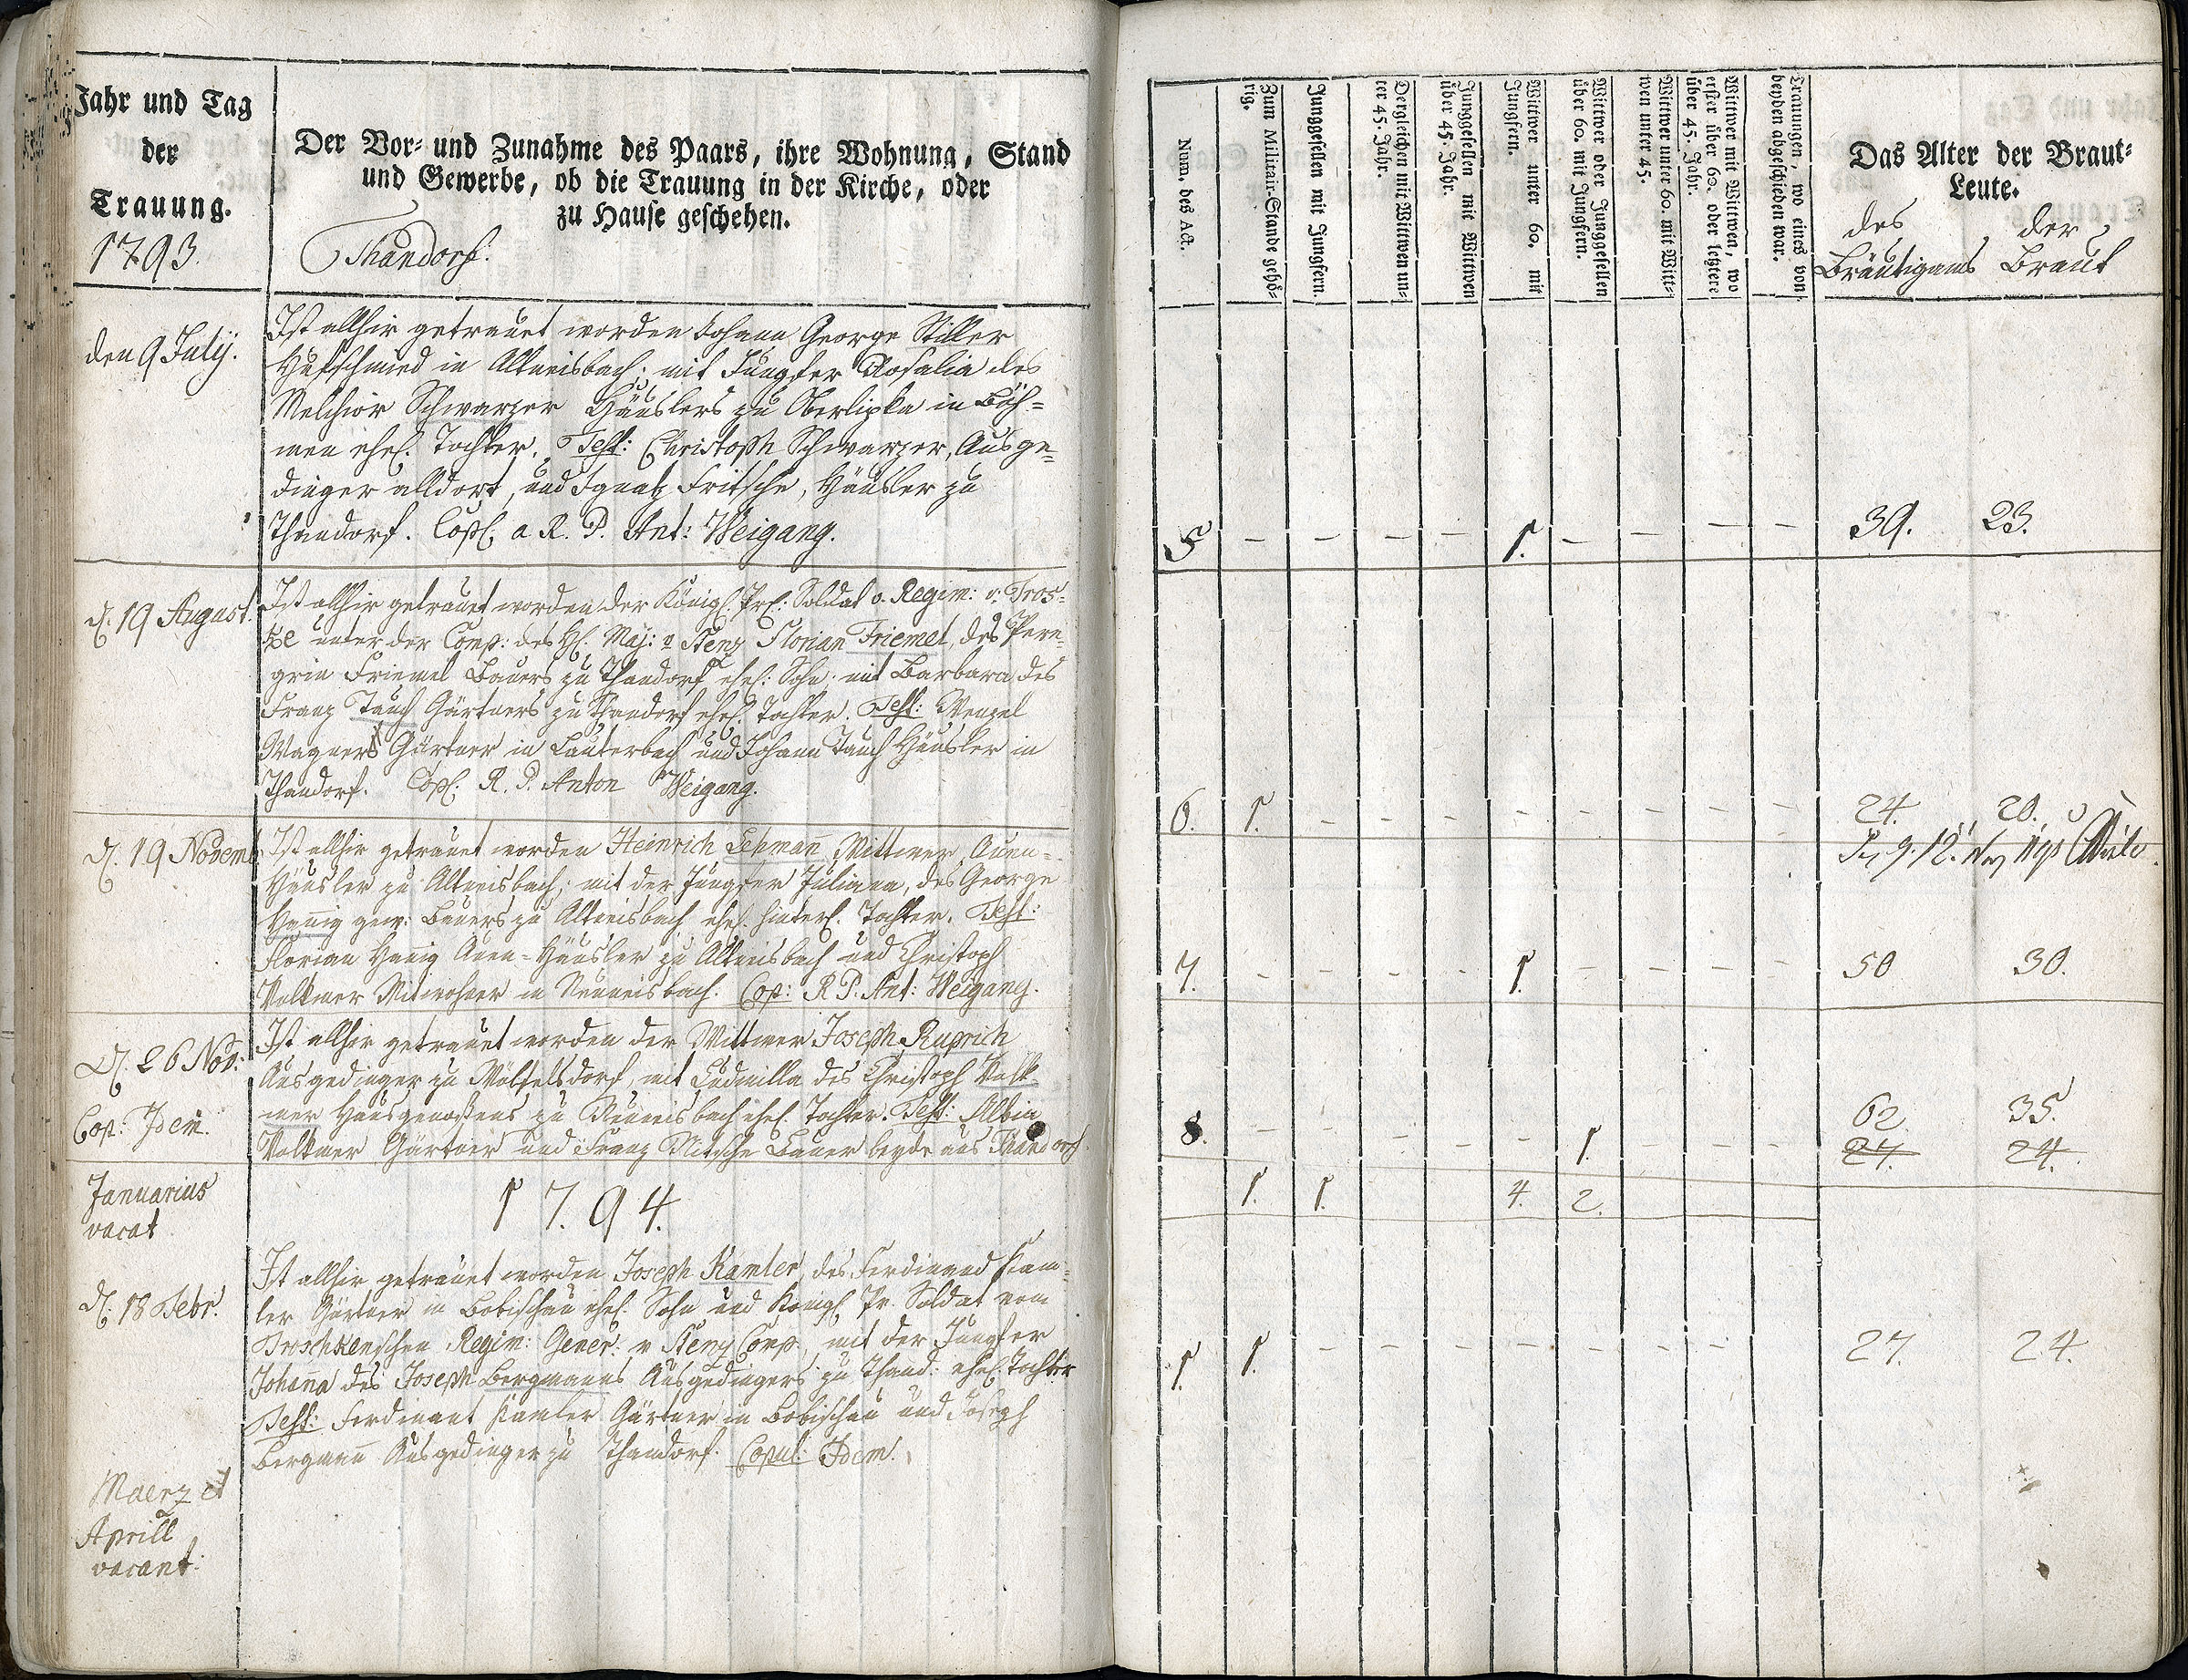 Jahr und Tag
der
Trauung.
1793.
Der Vor- und Zunahme des Paars, ihre Wohnung, Stand
und Gewerbe, ob die Trauung in der Kirche, oder
zu Hause geschehen.
Thandorf.
den 9 July.
Ist allhir getrauet worden Johann George Stiller
Hufschmied in Altneisbach; mit Jungfer Rosalia des
Melchior Schwarzer Häuslers zu Oberlipka in Böh=
men ehel. Tochter. Test: Christoph Schwarzer, Ausge=
dinger alldort, und Ignatz Fritsche, Häusler zu
Thandorf. Copl. a R. P. Ant: Weigang.
d. 19 August.
Ist allhir getrauet worden der Königl. Pr: Soldat v. Regim: v. Tros=
ke unter der Comp: des H. Maj: v Stenz Florian Friemel, des Pere=
grin Friemel Bauers zu Thandorf ehel: Sohn. mit Barbara des
Franz Tauch Gärtners zu Thandorf ehel. Tochter. Test: Wenzel
Wagner Gärtner in Lauterbach und Johann Tauch Häusler in
Thandorf. Copl. R. P. Anton Weigang.
d. 19 Novemb
Ist allhir getrauet worden Heinrich Lehmann Wittwer, Auen=
Häusler zu Altneisbach; mit der Jungfer Juliana, des George
Hannig gew: Bauers zu Altneisbach ehel. hinterl. Tochter. Test:
Florian Hannig Auen=Häusler zu Altneisbach und Christoph
Volkmer Mitwohner in Neuneisbach. Cop: R P. Ant: Weigang.
d. 26 Nov:
Cop: Idem.
Ist allhir getrauet worden der Wittwer Joseph Ruprich
Ausgedinger zu Wölfelsdorf, mit Ludmilla des Christoph Volk
mer Hausgenoßens zu Neuneisbach ehel. Tochter. Test: Albin
Volkmer Gärtner und Franz Nitsche Bauer beyde aus Thandorf
Januarius
vacat
1794.
d. 18 Febr.
Ist allhir getrauet worden Joseph Kamler, des Ferdinand Kam=
ler Gärtner in Bobischau ehel. Sohn und Königl. Pr. Soldat vom
Troschkenschen Regim: Gener: v Stenz Comp, mit der Jungfer
Johana des Joseph Bergmanns Ausgedingers zu Thand: ehel. Tochter
Test: Ferdinant Kamler Gärtner in Bobischau und Joseph
Bergmann Ausgedinger zu Thandorf. Copul: Idem.
Maerz et
Aprill
vacant.
Num. des Act.
Zum Militair-Stande gehö-
rig.
Junggesellen mit Jungfern.
Dergleichen mit Wittwen un-
ter 45. Jahr.
Junggesellen mit Wittwen
über 45. Jahr.
Wittwer unter 60. mit
Jungfern.
Wittwer oder Junggesellen
über 60. mit Jungfern.
Wittwer unter 60. mit Witt-
wen unter 45.
Wittwer mit Wittwen, wo
erster über 60. oder letztere
über 45. Jahr.
Trauungen, wo eines von
beyden abgeschieden war.
Das Alter der Braut-
Leute.
des der
Bräutigams Braut
5 – – – – 1. – – – – 39. 23.
6. 1. – – – – – – – – 24. 20.
7. – – – – 1. – – – – 50 30.
8. – – – – – 1. – – – 62 35.
27. 24.
1. 1. 4. 2.
1. 1. – – – – – – – 27. 24.